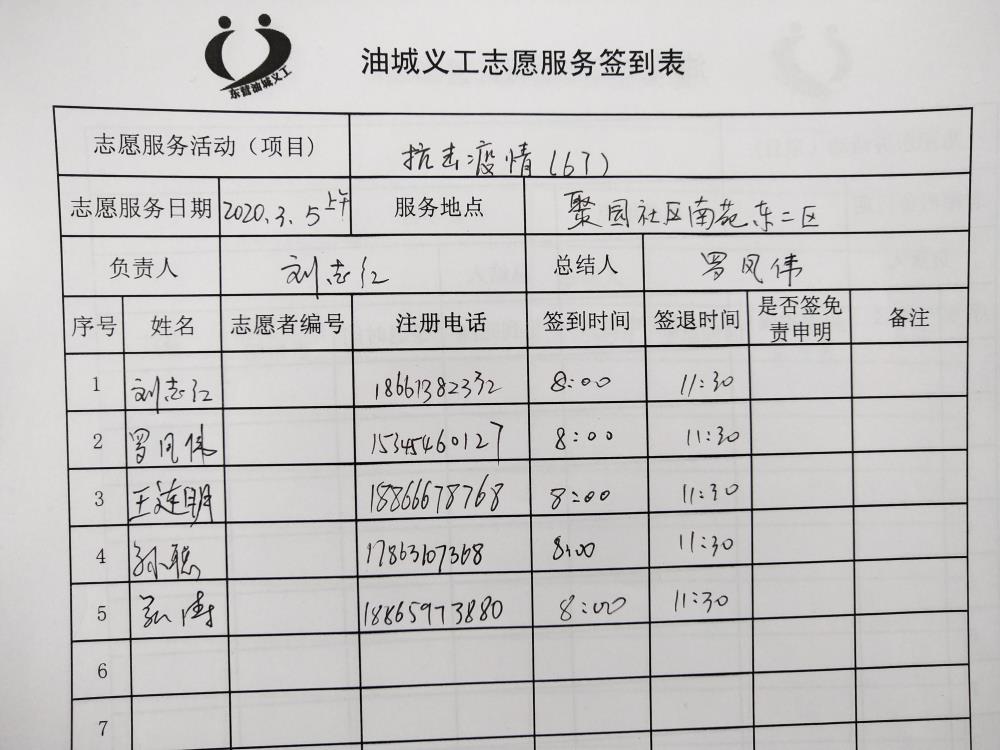 东营油城义工
油城义工志愿服务签到表
志愿服务活动（项目） 抗击疫情(67)
志愿服务日期 2020.3.5上午 服务地点 聚园社区南苑东二区
负责人 刘志红 总结人 罗凤伟
序号 姓名 志愿者编号 注册电话 签到时间 签退时间 是否签免责申明 备注
1 刘志红 18661382332 8:00 11:30
2 罗凤伟 15345460127 8:00 11:30
3 王莲明 18866678768 8:00 11:30
4 孙聪 17863107368 8:00 11:30
5 18865973880 8:00 11:30
6
7